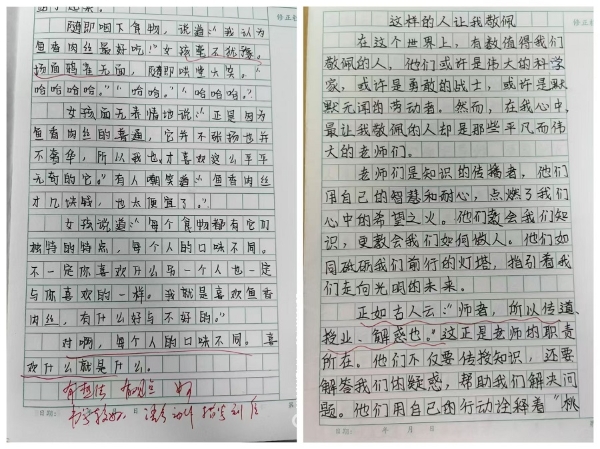 随即咽下食物，说道：“我认为
鱼香肉丝最好吃！”女孩毫不犹豫。
场面鸦雀无面，随即哄堂大笑。“
哈哈哈哈。”“哈哈。”“哈哈哈？”
女孩面无表情地说：“正是因为
鱼香肉丝的普通，它并不张扬也并
不奢华，所以我也才喜欢这么平平
无奇的它。”有人嘲笑着：“鱼香肉丝
才几块钱，也太便宜了。”
女孩说道：“每个食物都有它们
独特的特点，每个人的口味不同。
不一定你喜欢什么与一个人也一定
与你喜欢的一样。我就是喜欢鱼香
肉丝，有什么好与不好的。”
对啊，每个人的口味不同。喜
欢什么就是什么。
有想法 有观点 好
日期：
这样的人让我敬佩
在这个世界上，有数值得我们
敬佩的人，他们或许是伟大的科学
家，或许是勇敢的战士，或许是默
默无闻的劳动者。然而，在我心中，
最让我敬佩的人却是那些平凡而伟
大的老师们。
老师们是知识的传播者，他们
用自己的智慧和耐心，点燃了我们
心中的希望之火。他们教会我们知
识，更教会我们如何做人。他们如
同砥砺我们前行的灯塔，指引着我
们走向光明的未来。
正如古人云：“师者，所以传道、
授业、解惑也。”这正是老师的职责
所在。他们不仅要传授知识，还要
解答我们的疑惑，帮助我们解决问
题。他们用自己的行动诠释着“桃
日期： 年 月 日